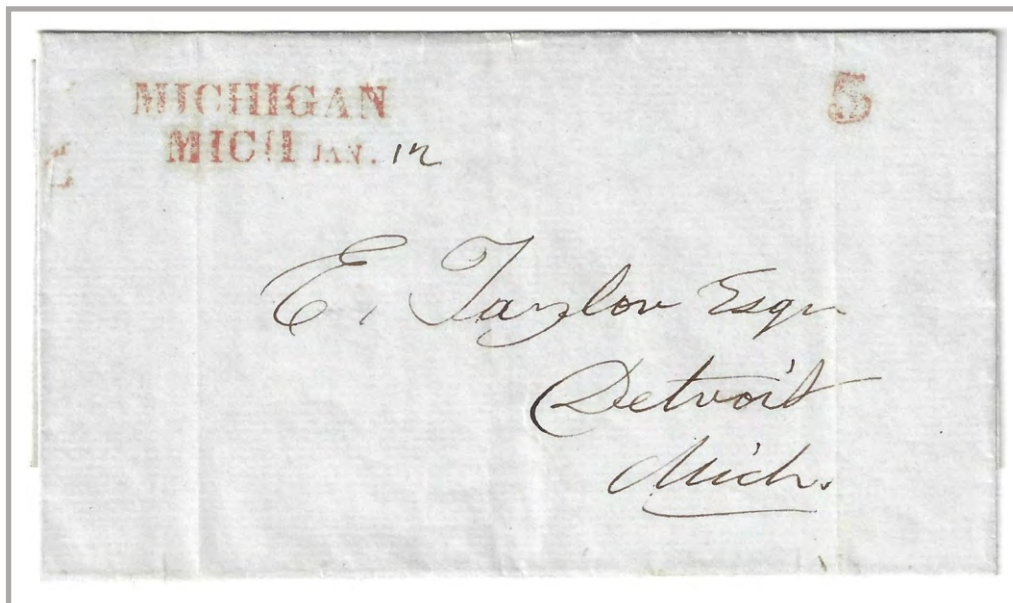 MICHIGAN
MICH JAN. 12
5
E. Taylor Esqr
Detroit
Mich.